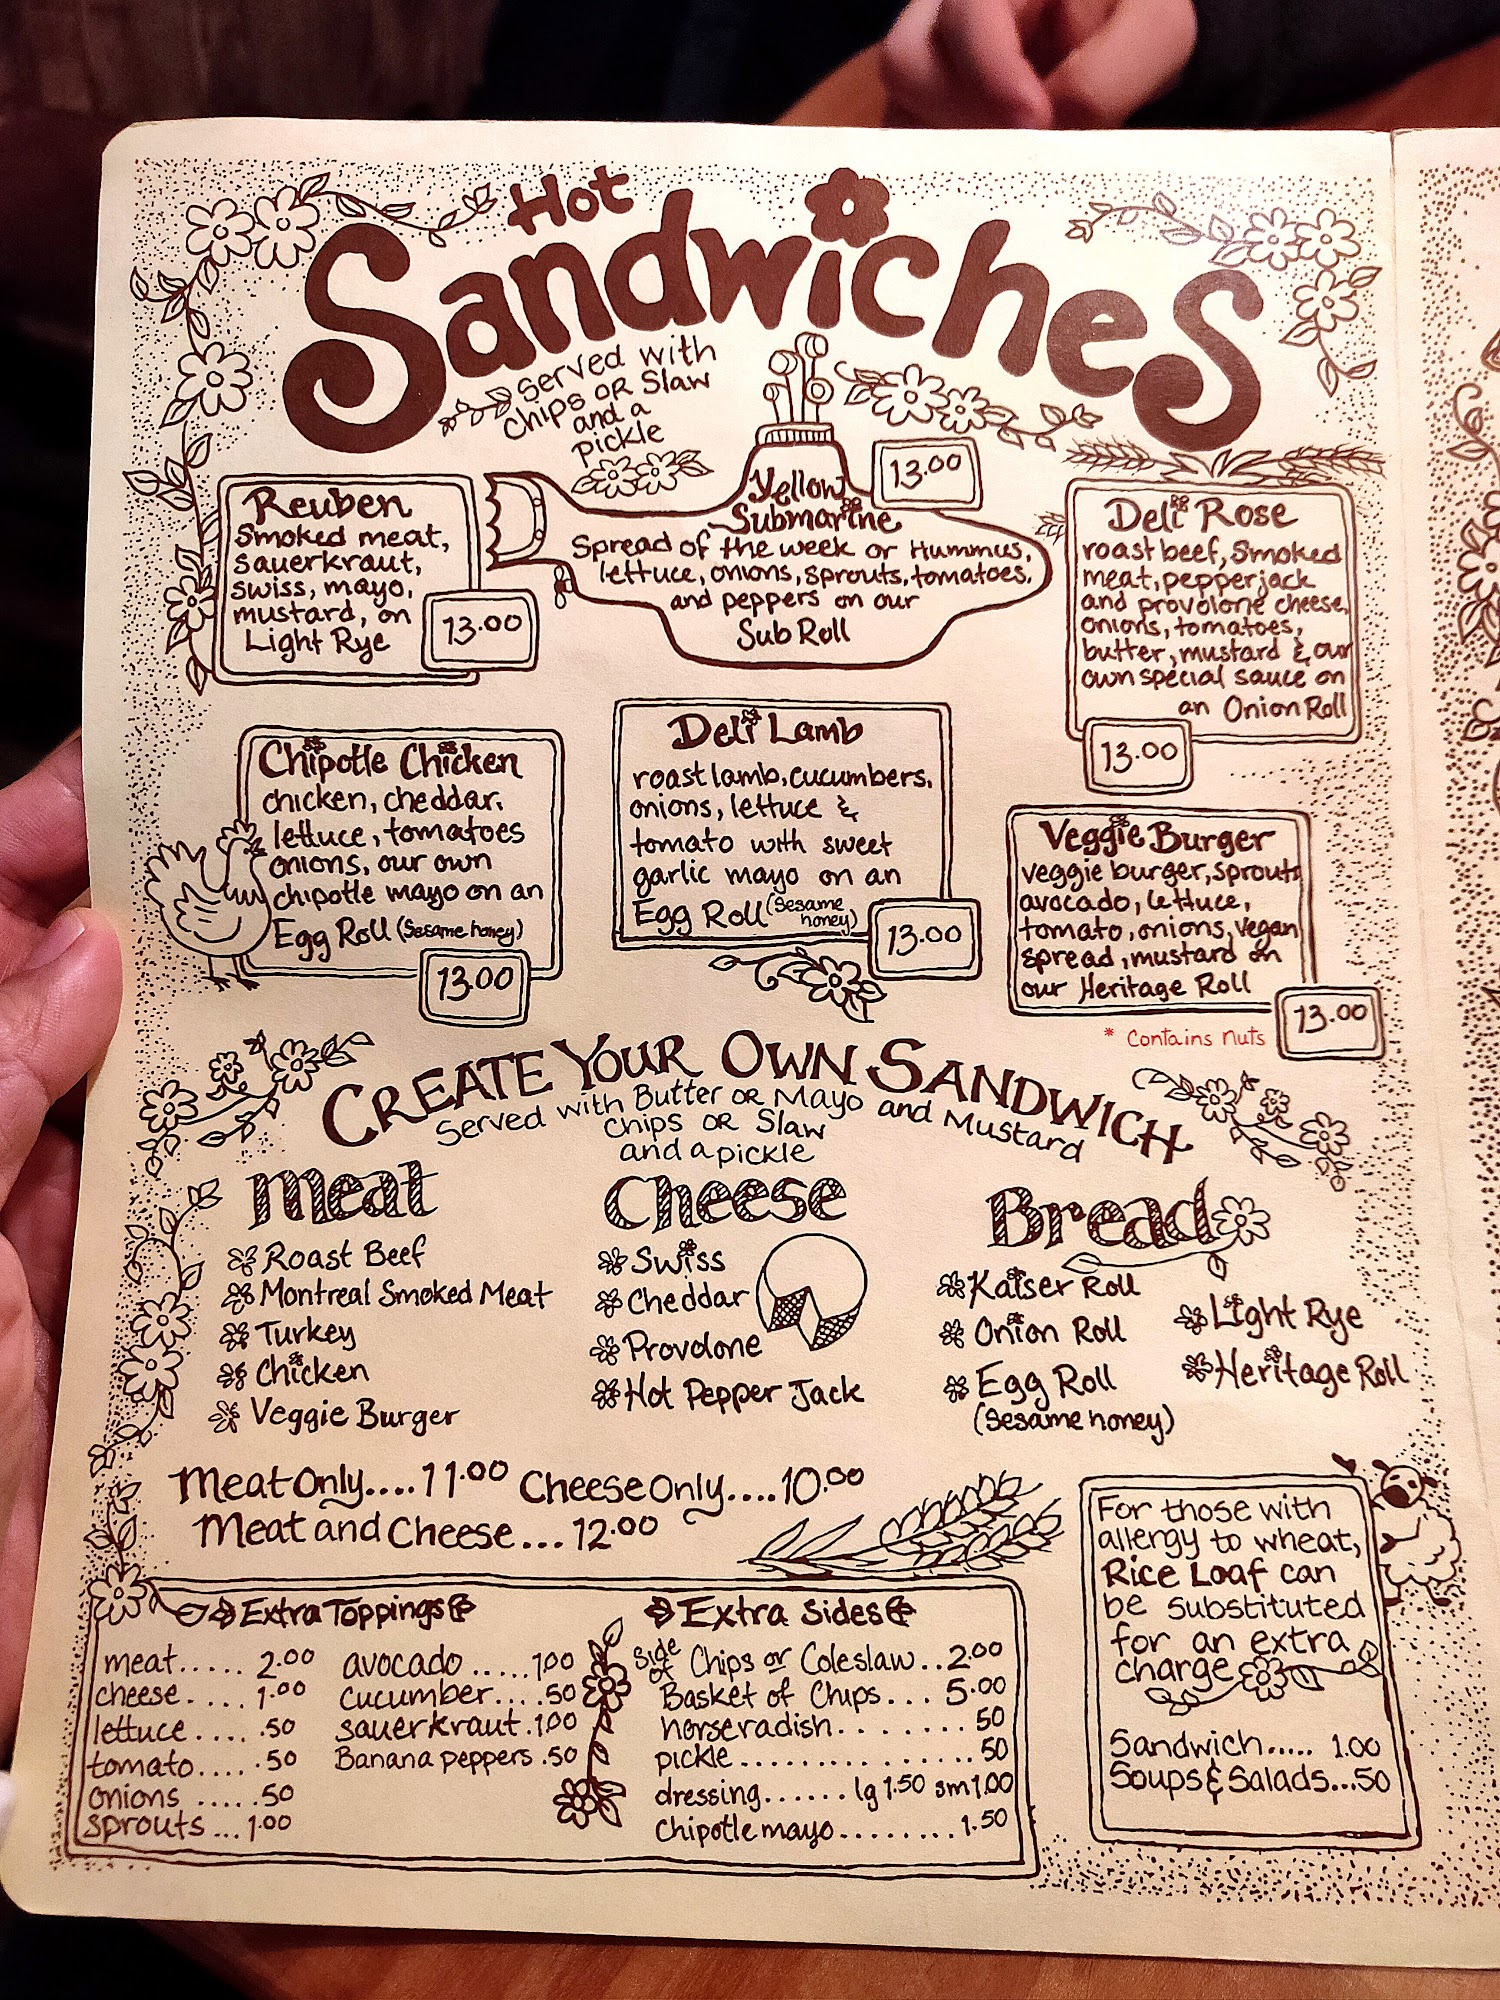 Hot
Sandwiches
served with
chips or Slaw
and a
pickle
Reuben
Smoked meat,
sauerkraut,
swiss, mayo,
mustard, on
Light Rye
13.00
Yellow
Submarine
13.00
Spread of the week or Hummus,
lettuce, onions, sprouts, tomatoes,
and peppers on our
Sub Roll
Deli Rose
roast beef, smoked
meat, pepperjack
and provolone cheese,
onions, tomatoes,
butter, mustard & our
own special sauce on
an Onion Roll
13.00
Chipotle Chicken
chicken, cheddar,
lettuce, tomatoes
onions, our own
chipotle mayo on an
Egg Roll (sesame honey)
13.00
Deli Lamb
roast lamb, cucumbers,
onions, lettuce &
tomato with sweet
garlic mayo on an
Egg Roll (sesame
honey)
13.00
Veggie Burger
veggie burger, sprouts
avocado, lettuce,
tomato, onions, vegan
spread, mustard on
our Heritage Roll
13.00
* Contains nuts
Create Your Own Sandwich
Served with Butter or Mayo and Mustard
chips or Slaw
and a pickle
Meat
Roast Beef
Montreal Smoked Meat
Turkey
Chicken
Veggie Burger
Cheese
Swiss
Cheddar
Provolone
Hot Pepper Jack
Bread
Kaiser Roll
Onion Roll
Egg Roll
(sesame honey)
Light Rye
Heritage Roll
Meat Only....11.00 Cheese Only....10.00
Meat and Cheese...12.00
Extra Toppings
meat..... 2.00
cheese.... 1.00
lettuce..... .50
tomato..... .50
onions ..... .50
sprouts ... 1.00
avocado .....1.00
cucumber.... .50
sauerkraut .1.00
Banana peppers .50
Extra Sides
Side of Chips or Coleslaw.. 2.00
Basket of Chips... 5.00
horseradish........ .50
pickle................ .50
dressing...... lg 1.50 sm 1.00
chipotle mayo........ 1.50
For those with
allergy to wheat,
Rice Loaf can
be substituted
for an extra
charge
Sandwich..... 1.00
Soups & Salads... .50